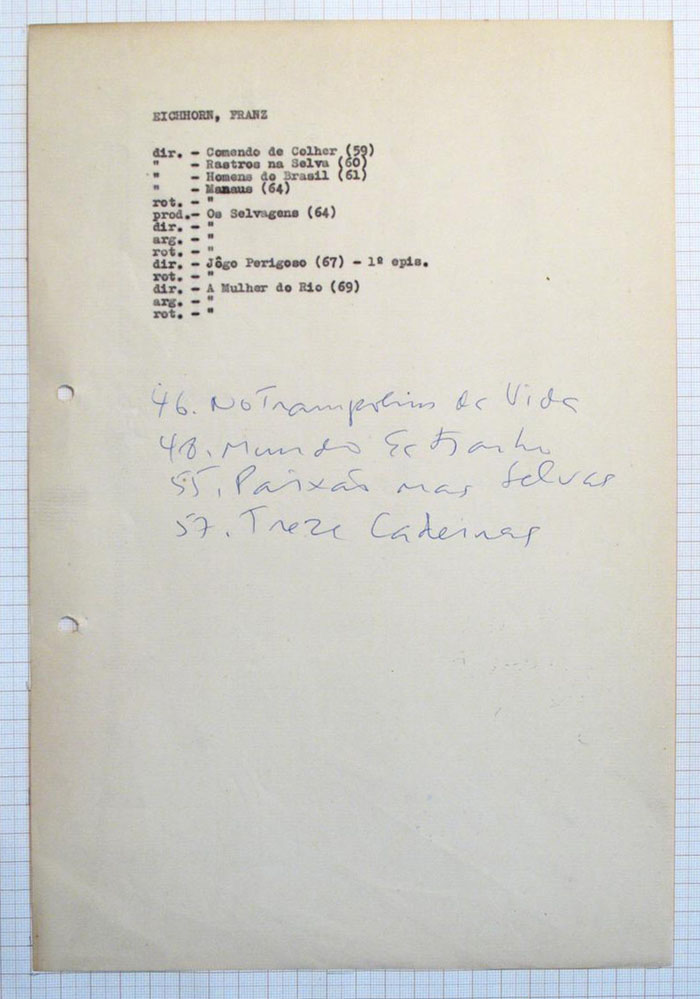 EICHHORN, FRANZ
dir. - Comendo de Colher (59)
" - Rastros na Selva (60)
" - Homens do Brasil (61)
" - Manaus (64)
rot. - "
prod.- Os Selvagens (64)
dir. - "
arg. - "
rot. - "
dir. - Jôgo Perigoso (67) - 1º epis.
rot. - "
dir. - A Mulher do Rio (69)
arg. - "
rot. - "
46. No Trampolim da Vida
48. Mundo Estranho
55. Paixão nas Selvas
57. Treze Cadeiras